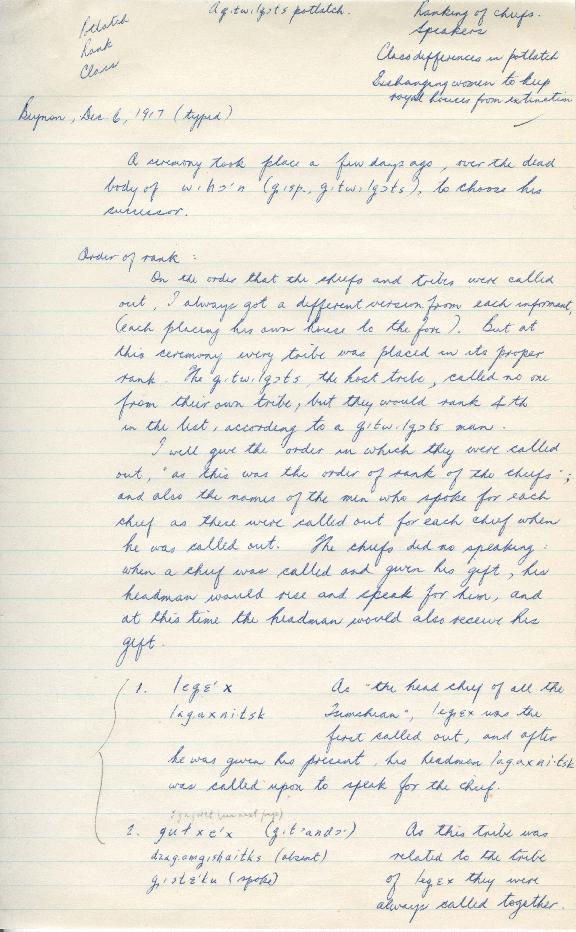 A gitwilgɔts potlatch.
Potlatch
Rank
Class
Ranking of chiefs.
Speakers
Class differences in potlatch
Exchanging women to keep
royal houses from extinction
Beynon, Dec. 6, 1917 (typed)
A ceremony took place a few days ago, over the dead
body of wihɔ'n (gisp., gitwilgɔts), to choose his
successor.
Order of rank :
On the order that the chiefs and tribes were called
out, I always got a different version from each informant,
(each placing his own house to the fore). But at
this ceremony every tribe was placed in its proper
rank. The gitwilgɔts, the host tribe, called no one
from their own tribe, but they would rank 4th
in the list, according to a gitwilgɔts man.
I will give the order in which they were called
out, "as this was the order of rank of the chiefs";
and also the names of the men who spoke for each
chief as these were called out for each chief when
he was called out. The chiefs did no speaking:
when a chief was called and given his gift, his
headman would rise and speak for him, and
at this time the headman would also receive his
gift.
1. legɛ'x As "the head chief of all the
lagaxnitsk Tsimshian", legɛx was the
first called out, and after
he was given his present, his headman lagaxni·tsk
was called upon to speak for the chief.
(see next page)
2. gutxɛ'x (git'andɔ·) As this tribe was
dzagamgishaitks (absent) related to the tribe
gistɛ'ku (spoke) of legɛx they were
always called together.